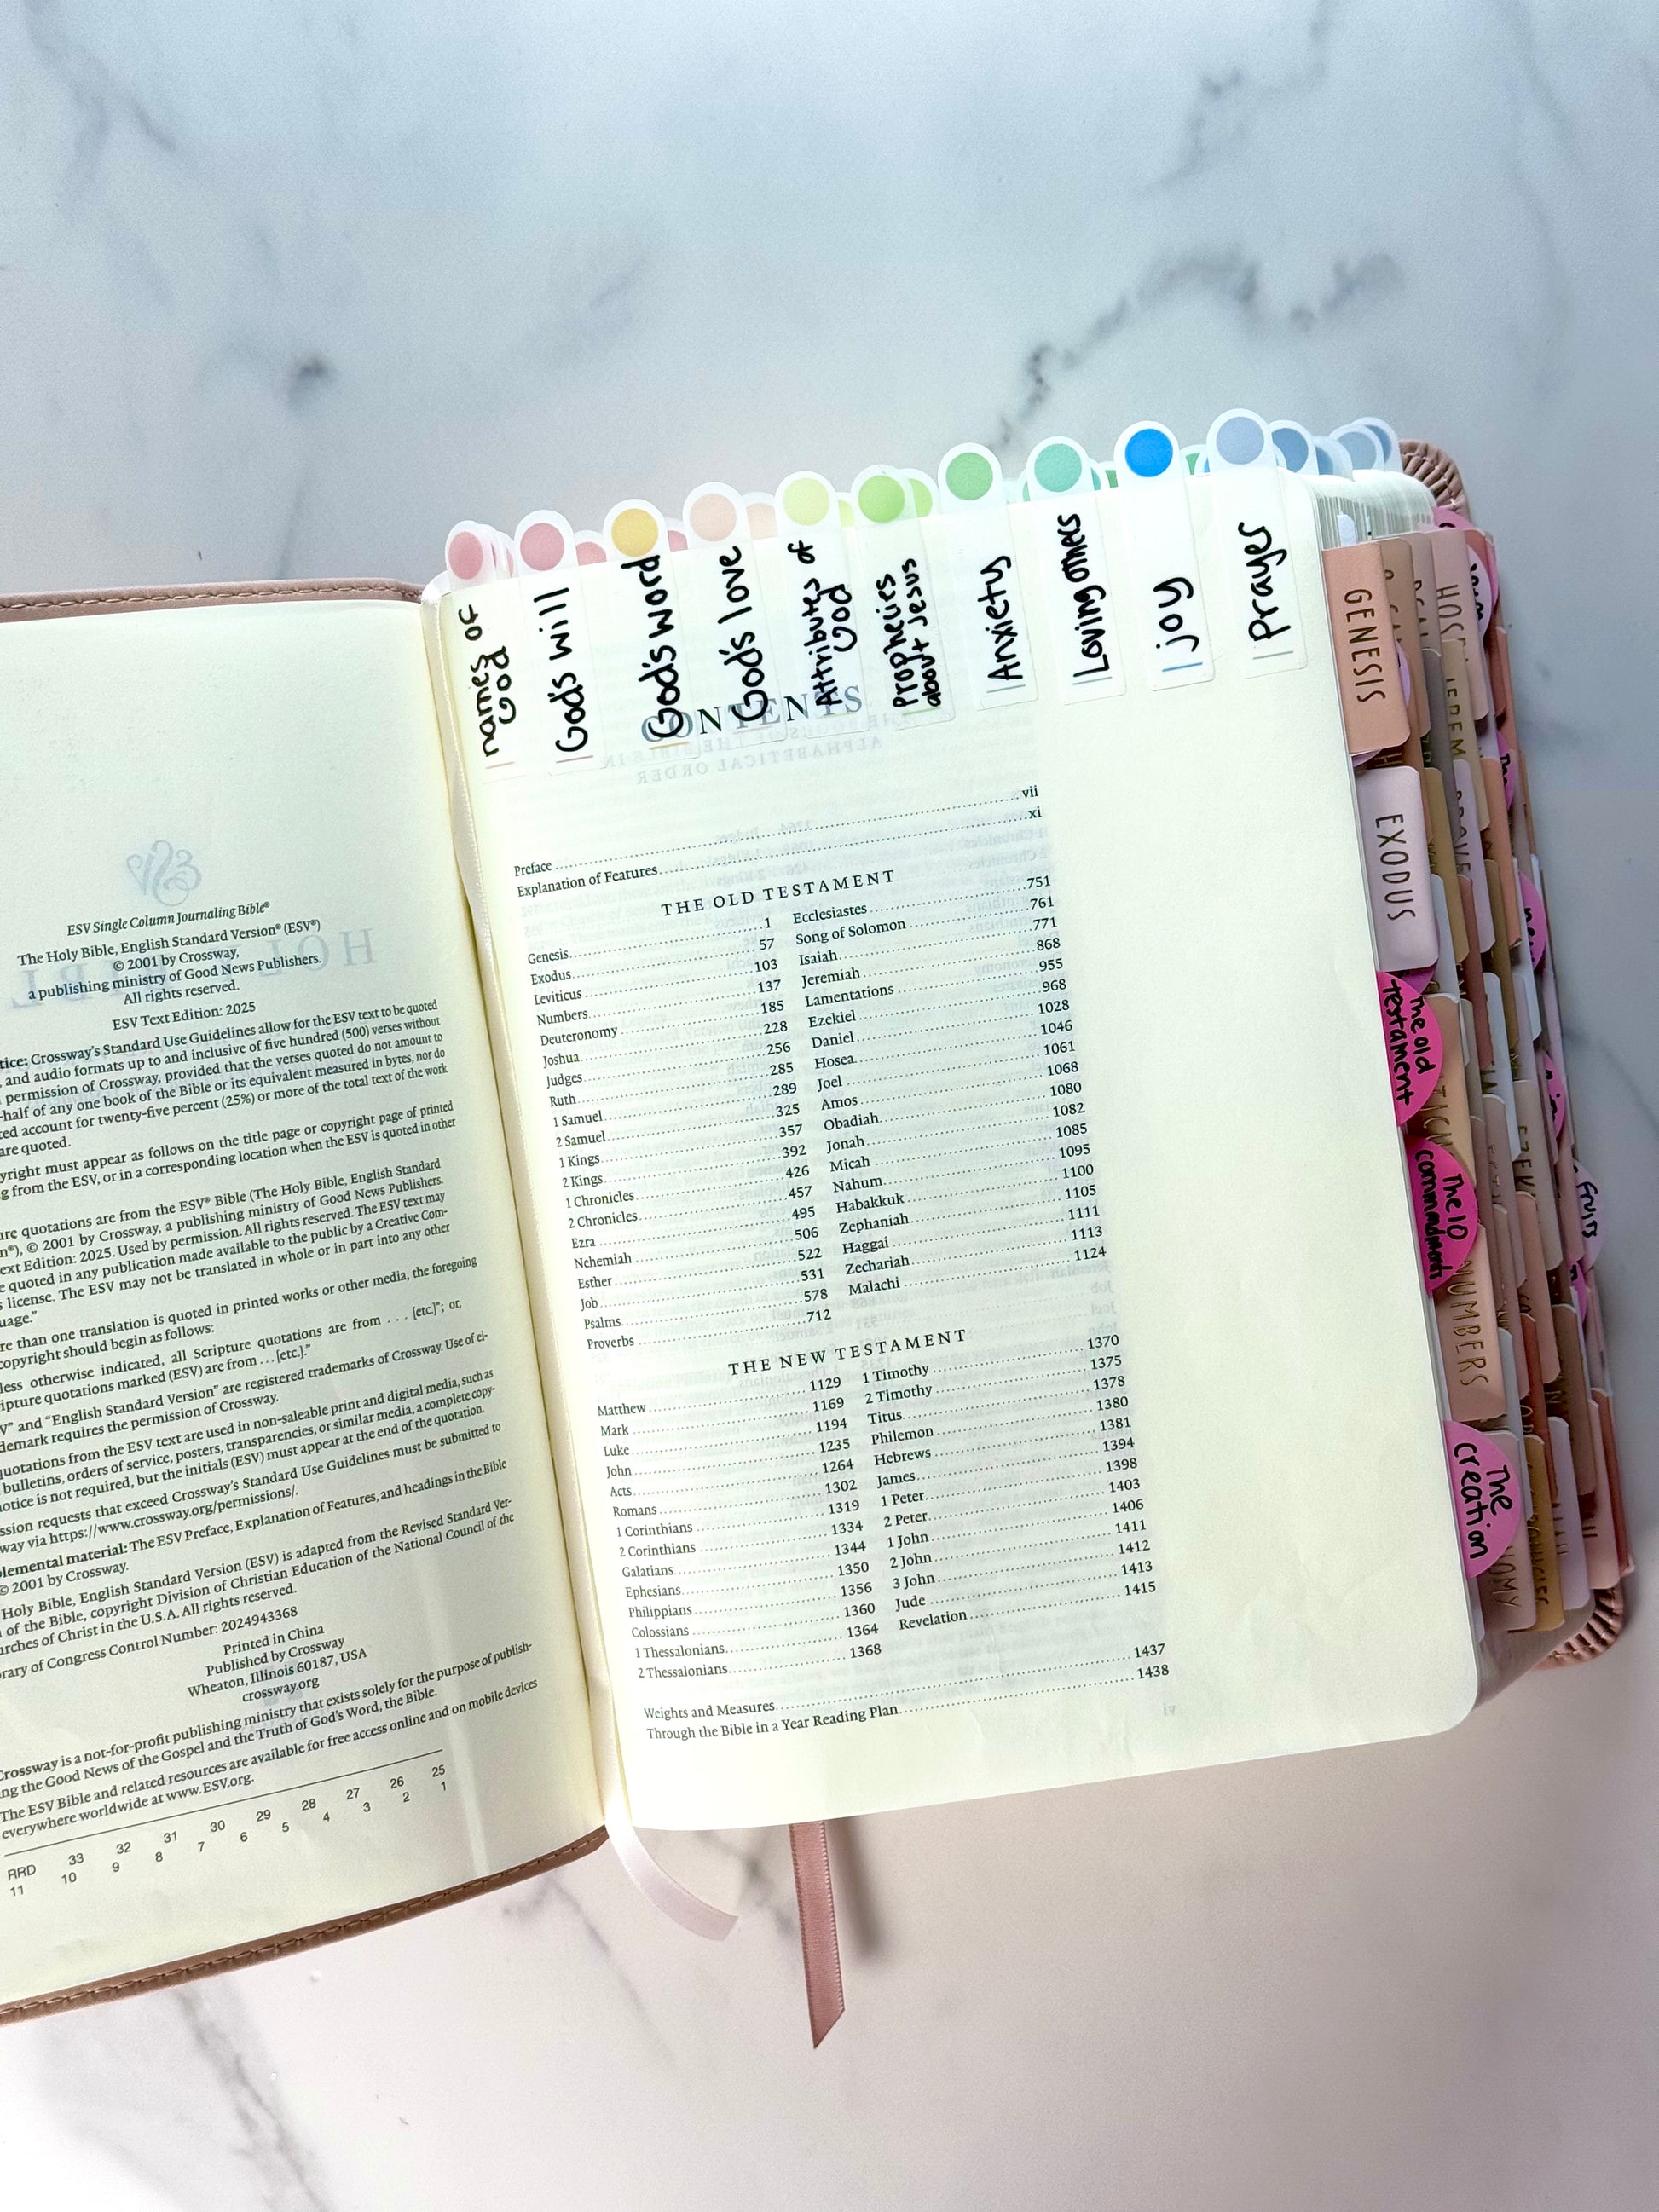 ESV Single Column Journaling Bible®
The Holy Bible, English Standard Version® (ESV®)
© 2001 by Crossway,
a publishing ministry of Good News Publishers.
All rights reserved.
ESV Text Edition: 2025
Crossway's Standard Use Guidelines allow for the ESV text to be quoted
and audio formats up to and inclusive of five hundred (500) verses without
permission of Crossway, provided that the verses quoted do not amount to
-half of any one book of the Bible or its equivalent measured in bytes, nor do
account for twenty-five percent (25%) or more of the total text of the work
are quoted.
must appear as follows on the title page or copyright page of printed
from the ESV, or in a corresponding location when the ESV is quoted in other
quotations are from the ESV® Bible (The Holy Bible, English Standard
© 2001 by Crossway, a publishing ministry of Good News Publishers.
Text Edition: 2025. Used by permission. All rights reserved. The ESV text may
quoted in any publication made available to the public by a Creative Com-
license. The ESV may not be translated in whole or in part into any other
than one translation is quoted in printed works or other media, the foregoing
copyright should begin as follows:
otherwise indicated, all Scripture quotations are from . . . [etc.]"; or,
quotations marked (ESV) are from . . . [etc.]."
and "English Standard Version" are registered trademarks of Crossway. Use of ei-
requires the permission of Crossway.
quotations from the ESV text are used in non-saleable print and digital media, such as
bulletins, orders of service, posters, transparencies, or similar media, a complete copy-
notice is not required, but the initials (ESV) must appear at the end of the quotation.
requests that exceed Crossway's Standard Use Guidelines must be submitted to
via https://www.crossway.org/permissions/.
material: The ESV Preface, Explanation of Features, and headings in the Bible
© 2001 by Crossway.
Holy Bible, English Standard Version (ESV) is adapted from the Revised Standard Ver-
of the Bible, copyright Division of Christian Education of the National Council of the
of Christ in the U.S.A. All rights reserved.
Congress Control Number: 2024943368
Printed in China
Published by Crossway
Wheaton, Illinois 60187, USA
crossway.org
Crossway is a not-for-profit publishing ministry that exists solely for the purpose of publish-
ing the Good News of the Gospel and the Truth of God's Word, the Bible.
The ESV Bible and related resources are available for free access online and on mobile devices
everywhere worldwide at www.ESV.org.
RRD 33 32 31 30 29 28 27 26 25
11 10 9 8 7 6 5 4 3 2 1
names of
God
God's will
God's word
God's love
Attributes of
God
Prophecies
about Jesus
Anxiety
Loving others
joy
Prayer
CONTENTS
Preface vii
Explanation of Features xi
THE OLD TESTAMENT
Genesis 1
Exodus 57
Leviticus 103
Numbers 137
Deuteronomy 185
Joshua 228
Judges 256
Ruth 285
1 Samuel 289
2 Samuel 325
1 Kings 357
2 Kings 392
1 Chronicles 426
2 Chronicles 457
Ezra 495
Nehemiah 506
Esther 522
Job 531
Psalms 578
Proverbs 712
Ecclesiastes 751
Song of Solomon 761
Isaiah 771
Jeremiah 868
Lamentations 955
Ezekiel 968
Daniel 1028
Hosea 1046
Joel 1061
Amos 1068
Obadiah 1080
Jonah 1082
Micah 1085
Nahum 1095
Habakkuk 1100
Zephaniah 1105
Haggai 1111
Zechariah 1113
Malachi 1124
THE NEW TESTAMENT
Matthew 1129
Mark 1169
Luke 1194
John 1235
Acts 1264
Romans 1302
1 Corinthians 1319
2 Corinthians 1334
Galatians 1344
Ephesians 1350
Philippians 1356
Colossians 1360
1 Thessalonians 1364
2 Thessalonians 1368
1 Timothy 1370
2 Timothy 1375
Titus 1378
Philemon 1380
Hebrews 1381
James 1394
1 Peter 1398
2 Peter 1403
1 John 1406
2 John 1411
3 John 1412
Jude 1413
Revelation 1415
Weights and Measures 1437
Through the Bible in a Year Reading Plan 1438
GENESIS
EXODUS
The old
testament
The 10
commandments
NUMBERS
The
creation
Fruits